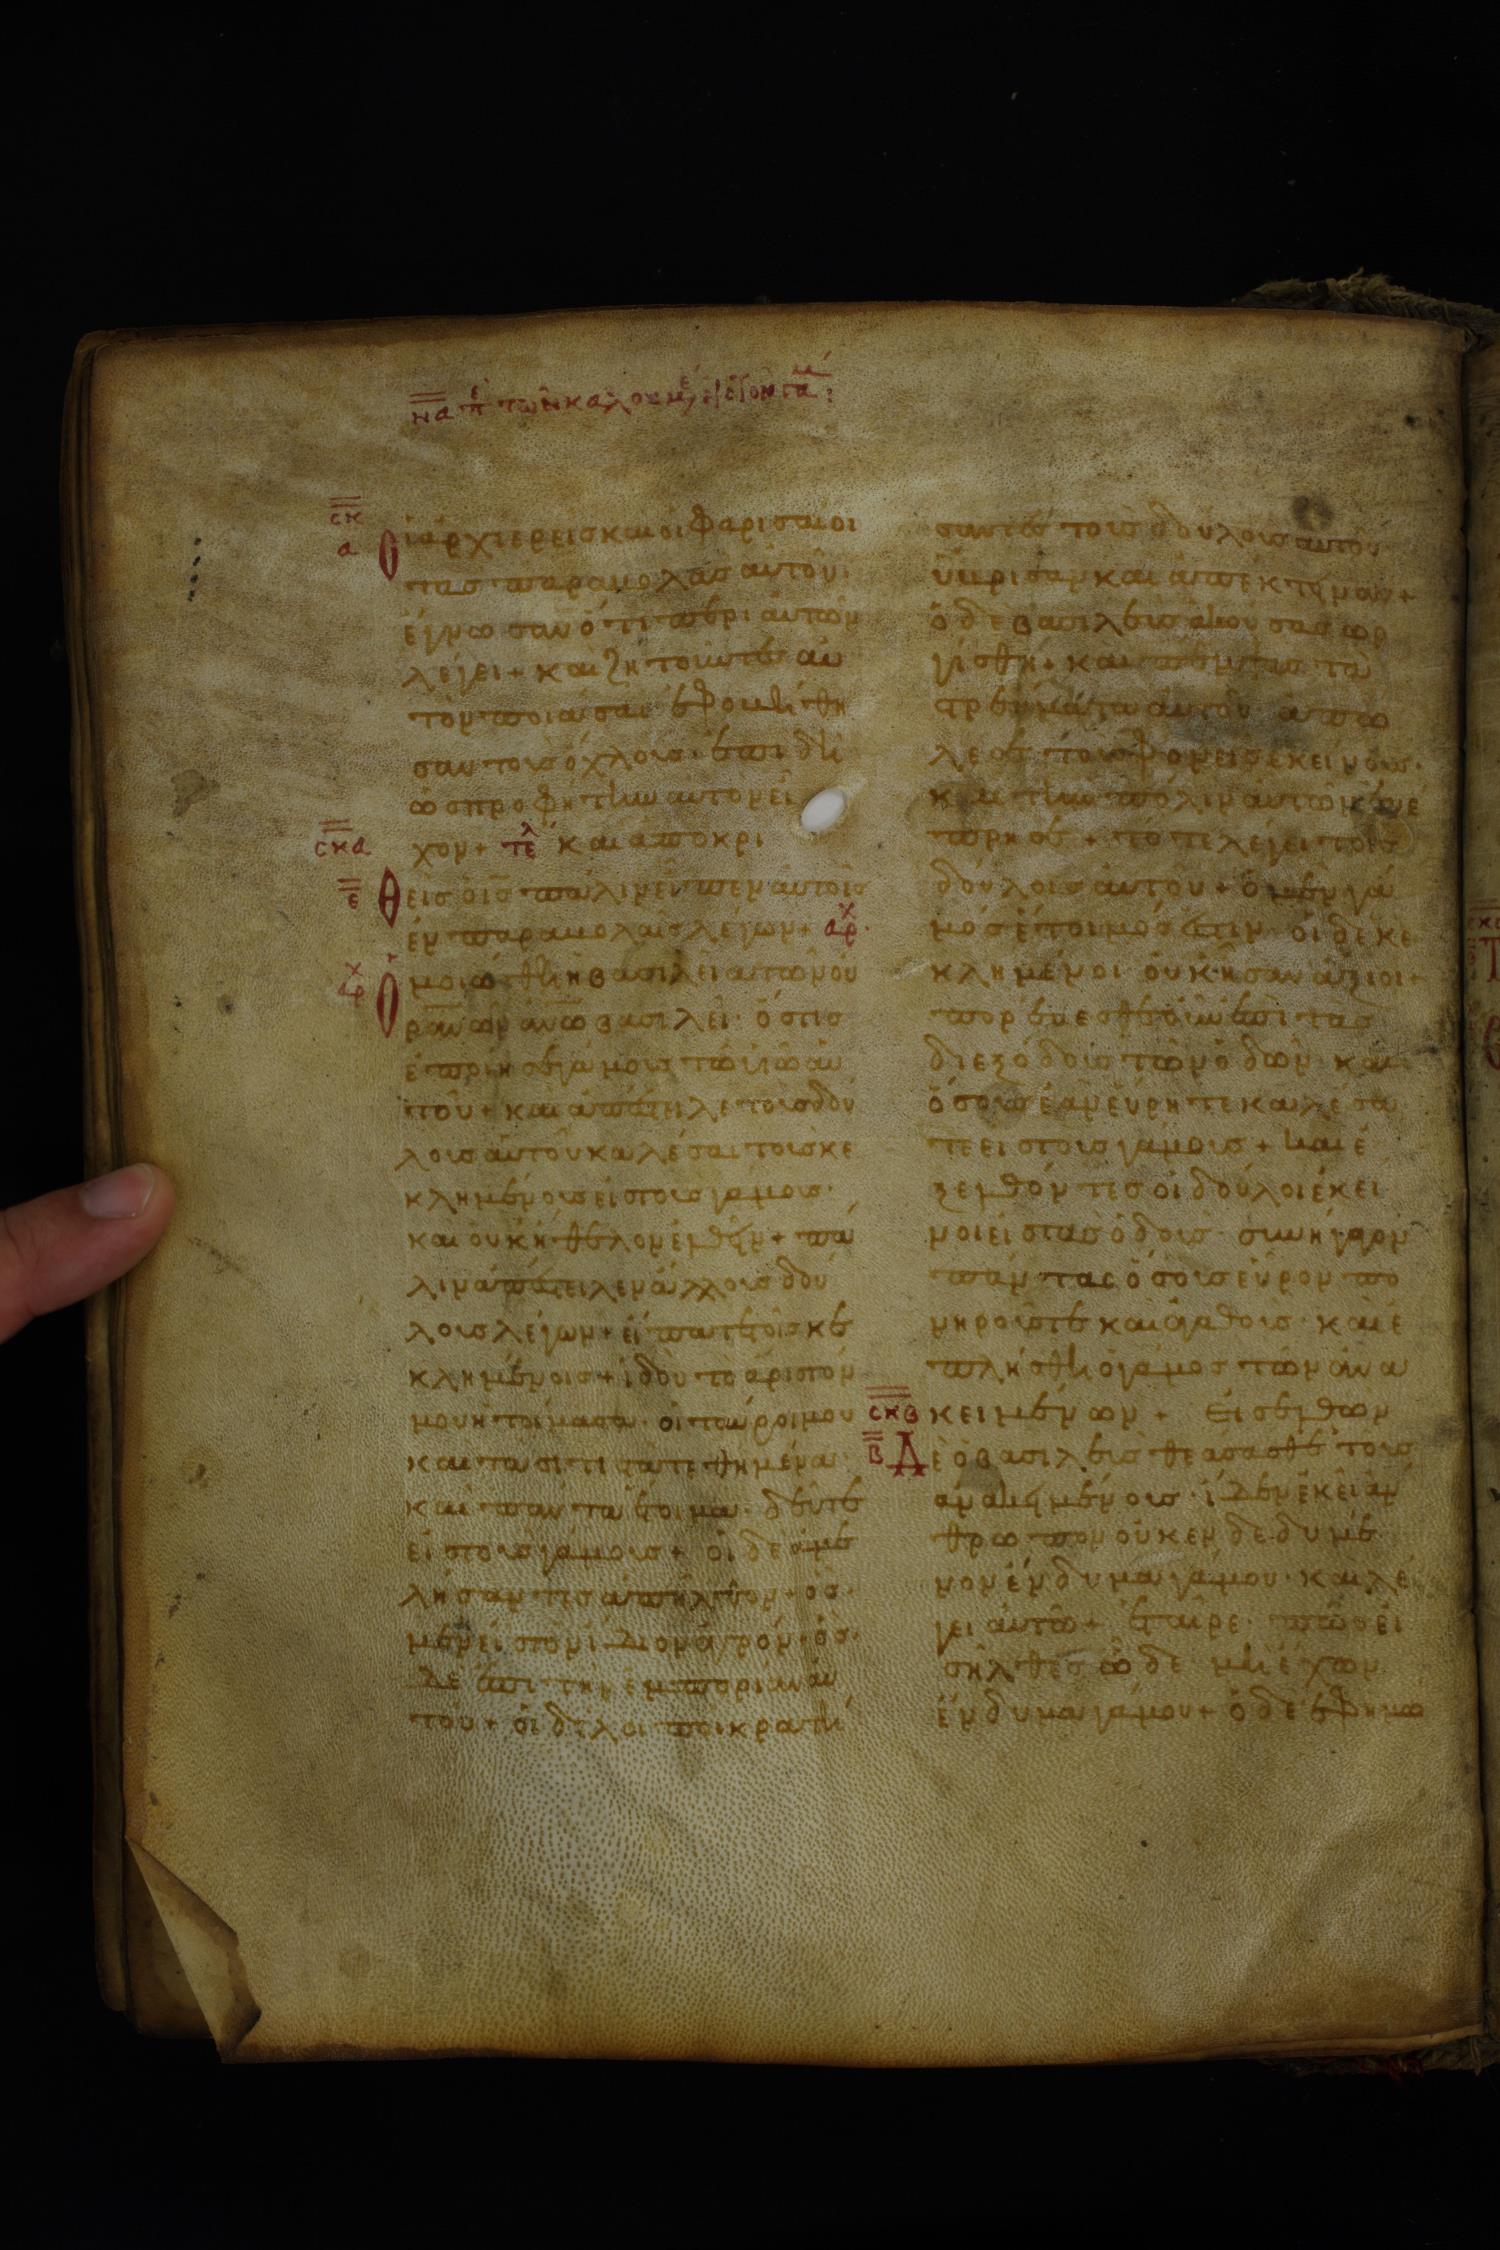 να πε τῶν καλουμε εἰς τὸν γα
σκ
α
Οἱ ἀρχιερεῖς καὶ οἱ φαρισαῖοι
τὰς παραβολὰς αὐτοῦ·
ἔγνωσαν ὅτι περὶ αὐτῶν
λέγει + καὶ ζητοῦντες αὐ
τὸν ποιάσαι ἐφοβήθη
σαν τοὺς ὄχλους· ἐπειδὴ
ὡς προφήτην αὐτὸν εἶ
χον + τελ καὶ ἀποκρι
σκα
ε
θεὶς ὁ ις πάλιν εἶπεν αὐτοῖς
ἐν παραβολαῖς λέγων + αρχ
αρχ
Ὁμοιώθη ἡ βασιλεία τῶν οὐ
ρανῶν ανω βασιλεῖ· ὅστις
ἐποίησε γάμους τῷ υἱῷ αὐ
τοῦ + καὶ ἀπέστειλε τοὺς δού
λους αὐτοῦ καλέσαι τοὺς κε
κλημένους εἰς τοὺς γάμους·
καὶ οὐκ ἤθελον ἐλθεῖν + πά
λιν ἀπέστειλεν ἄλλους δού
λους λέγων + εἴπατε τοῖς κε
κλημένοις + ἰδοὺ τὸ ἄριστόν
μου ἡτοίμασα· οἱ ταῦροί μου
καὶ τὰ σιτιστὰ τεθημένα·
καὶ πάντα ἕτοιμα· δεῦτε
εἰς τοὺς γάμους + οἱ δὲ ἀμε
λήσαντες ἀπῆλθον + ὁς·
μὲν εἰς τὸν ἴδιον ἀγρόν· ὃς·
δὲ ἐπὶ τὴν ἐμπορίαν αὐ
τοῦ + οἱ δὲ λοιποὶ κρατή
σαντες τοὺς δούλους αὐτοῦ
ὕβρισαν καὶ ἀπέκτειναν +
ὁ δὲ βασιλεὺς ἀκούσας ὠρ
γίσθη + καὶ πέμψας τὰ
στρεύματα αὐτοῦ ἀπώ
λεσε τοὺς φονεῖς ἐκείνους·
καὶ τὴν πόλιν αὐτῶν ἐνέ
πρησε + τότε λέγει τοῖς
δούλοις αὐτοῦ + ὁ μὲν γά
μος ἕτοιμός ἐστιν οἱ δὲ κε
κλημένοι οὐκ ἦσαν ἄξιοι +
πορεύεσθε οὖν ἐπὶ τὰς
διεξόδους τῶν ὁδῶν καὶ
ὅσους ἐὰν εὕρητε καλέσα
τε εἰς τοὺς γάμους + καὶ ἐ
ξελθόντες οἱ δοῦλοι ἐκεῖ
νοι εἰς τὰς ὁδοὺς· συνήγαγον
πάντας ὅσους εὗρον πο
νηρούς τε καὶ ἀγαθούς· καὶ ἐ
πλήσθη ὁ γάμος τῶν ἀνα
σκβ
κειμένων + Εἰσελθὼν
β
Δὲ ὁ βασιλεὺς θεάσασθε τοὺς
ἀνακειμένους· ἴδεν ἐκεῖ ἄν
θρωπον οὐκ ἐνδεδυμέ
νον ἔνδυμα γάμου· καὶ λέ
γει αὐτῷ + ἑταῖρε· πῶς εἰ
σῆλθες ὧδε μὴ ἔχων
ἔνδυμα γάμου + ὁ δὲ ἐφημώ